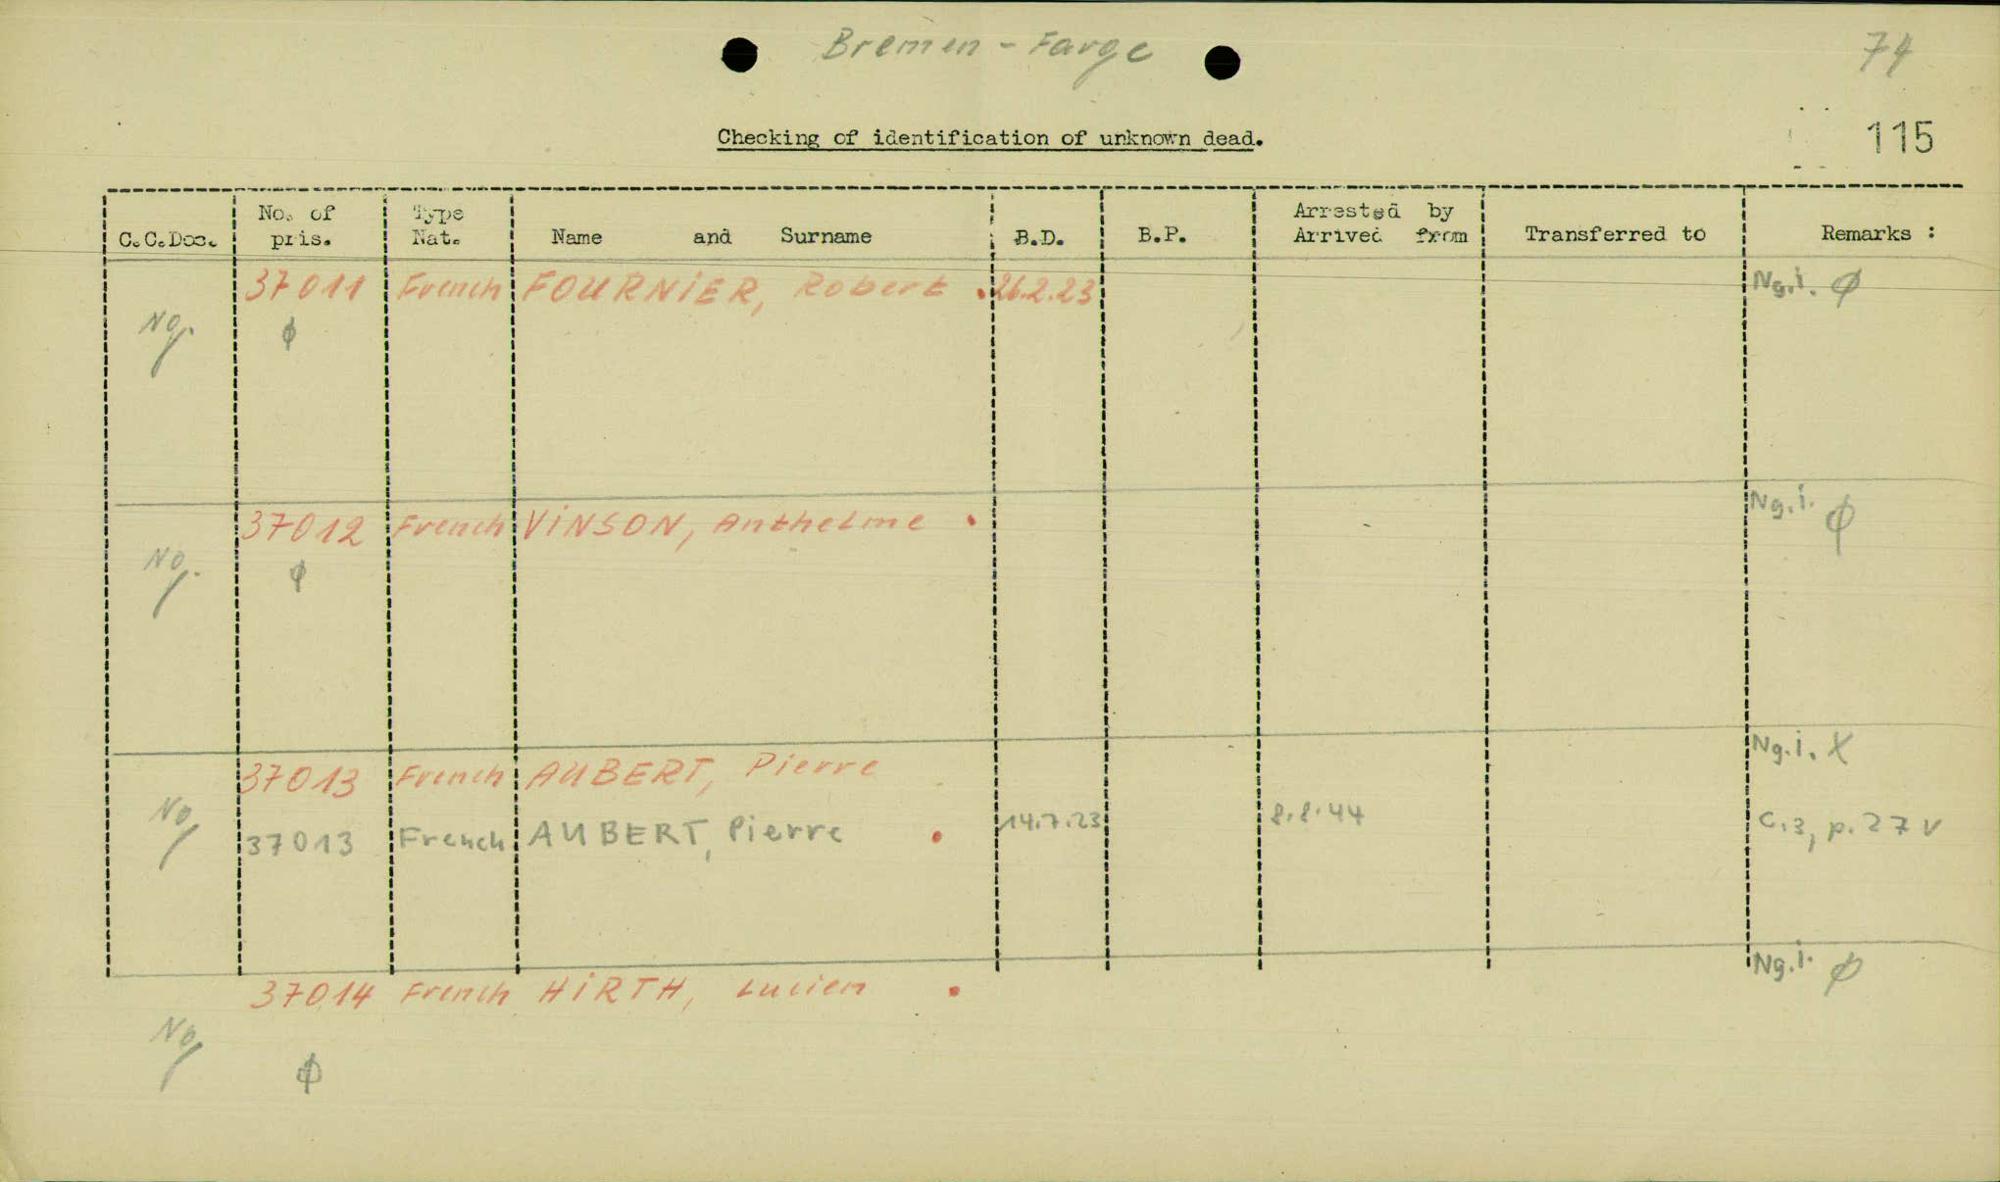 Bremen - Farge
74
Checking of identification of unknown dead.
115
C.C.Doc. No. of pris. Type Nat. Name and Surname B.D. B.P. Arrested by Arrived from Transferred to Remarks :
37011 French FOURNIER, Robert . 26.2.23 Ng.i. Ø
Ng. Ø
37012 French VINSON, Anthelme . Ng.i. Ø
Ng. Ø
37013 French AUBERT, Pierre Ng.i. X
Ng 37013 French AUBERT, Pierre . 14.7.23 8.8.44 C.3, p.27 v
37014 French HIRTH, Lucien . Ng.i. Ø
Ng Ø